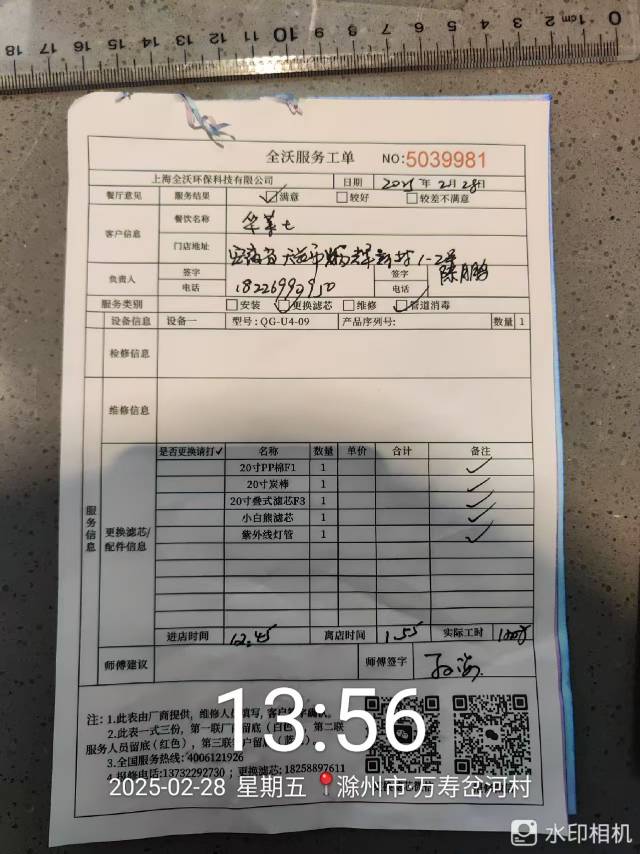 0 1cm 2 3 4 5 6 7 8 9 10 11 12 13 14 15 16 17 18
全沃服务工单 NO:5039981
上海全沃环保科技有限公司 日期 2025年2月28日
餐厅意见 服务结果 满意 较好 较差不满意
客户信息 餐饮名称 华莱士
门店地址 安徽省天长市 1-2号
负责人 签字 签字 陈月鹏
电话 18226992950 电话
服务类别 安装 更换滤芯 维修 管道消毒
设备信息 设备一 型号:QG-U4-09 产品序列号: 数量 1
检修信息
维修信息
服务信息
更换滤芯/配件信息
是否更换请打✓ 名称 数量 单价 合计 备注
20寸PP棉F1 1 ✓
20寸炭棒 1 ✓
20寸叠式滤芯F3 1 ✓
小白熊滤芯 1 ✓
紫外线灯管 1 ✓
进店时间 12.45 离店时间 1.55 实际工时
师傅建议 师傅签字
注:1.此表由厂商提供,维修人员填写,客户签字确认。
2.此表一式三份,第一联厂商留底(白色),第二联
服务人员留底(红色),第三联客户留底(蓝色)
3.全国服务热线:4006121926
4.报修电话:13732292730;更换滤芯:18258897611
13:56
2025-02-28 星期五 滁州市·万寿岔河村
水印相机